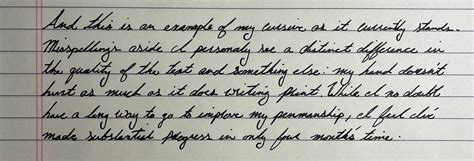 And this is an example of my cursive as it currently stands.
Misspellings aside I personaly see a distinct difference in
the quality of the text and something else: my hand doesn't
hurt as much as it does writing print. While I no doubt
have a long way to go to improve my penmanship, I feel I've
made substantial progress in only four month's time.